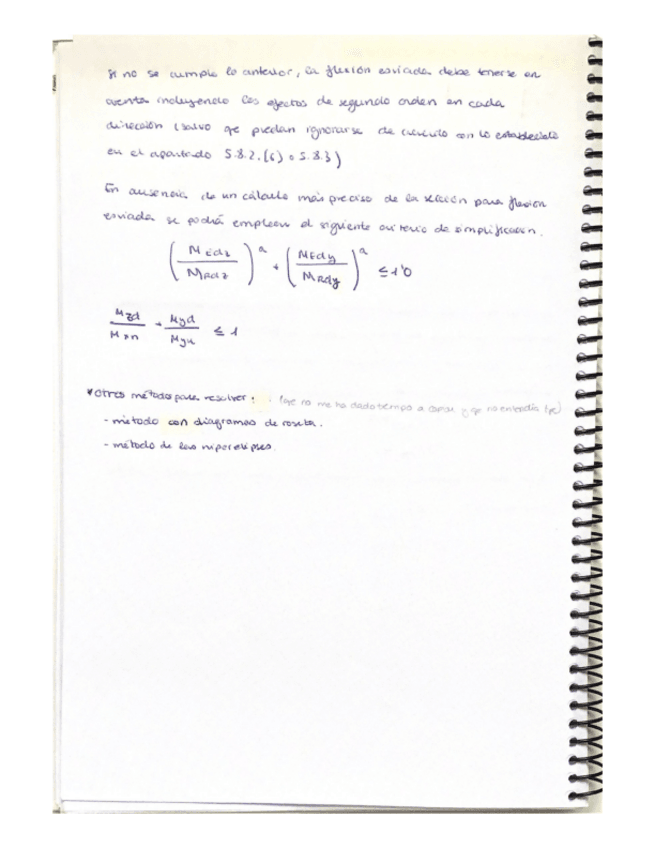 Si no se cumple lo anterior, la flexión esviada debe tenerse en
cuenta incluyendo los efectos de segundo orden en cada
dirección (salvo qe puedan ignorarse de acuerdo con lo establecido
en el apartado 5.8.2.(6) o 5.8.3)
En ausencia de un cálculo más preciso de la sección para flexión
esviada se podrá emplear el siguiente criterio de simplificación.
(MEdz/MRdz)^a + (MEdy/MRdy)^a ≤ 1'0
Mzd/ + Myd/Myu ≤ 1
* Otros métodos para resolver: (qe no me ha dado tiempo a copiar y qe no entendía)
- método con diagramas de roseta.
- método de las hiperelipses.